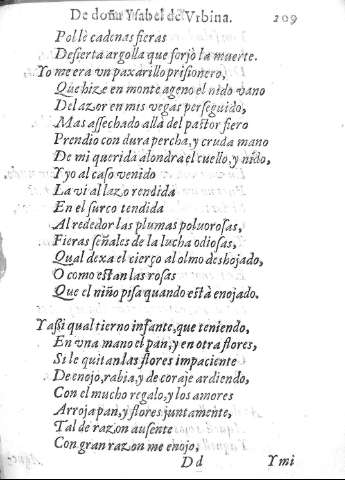 De doña Ysabel de Vrbina. 209
Pollè cadenas fieras
Desierta argolla que forjò la muerte.
Yo me era vn paxarillo prisionero,
Que hize en monte ageno el nido vano
Del azor en mis vegas perseguido,
Mas assechado allà del pastor fiero
Prendio con dura percha, y cruda mano
De mi querida alondra el cuello, y nido,
Y yo al caso venido
La vi al lazo rendida
En el surco tendida
Al rededor las plumas poluorosas,
Fieras señales de la lucha odiosas,
Qual dexa el cierço al olmo deshojado,
O como estan las rosas
Que el niño pisa quando està enojado.
Yassi qual tierno infante, que teniendo,
En vna mano el pan, y en otra flores,
Si le quitan las flores impaciente
De enojo, rabia, y de coraje ardiendo,
Con el mucho regalo, y los amores
Arroja pan, y flores juntamente,
Tal de razon ausente
Con gran razon me enojo,
Dd Y mi